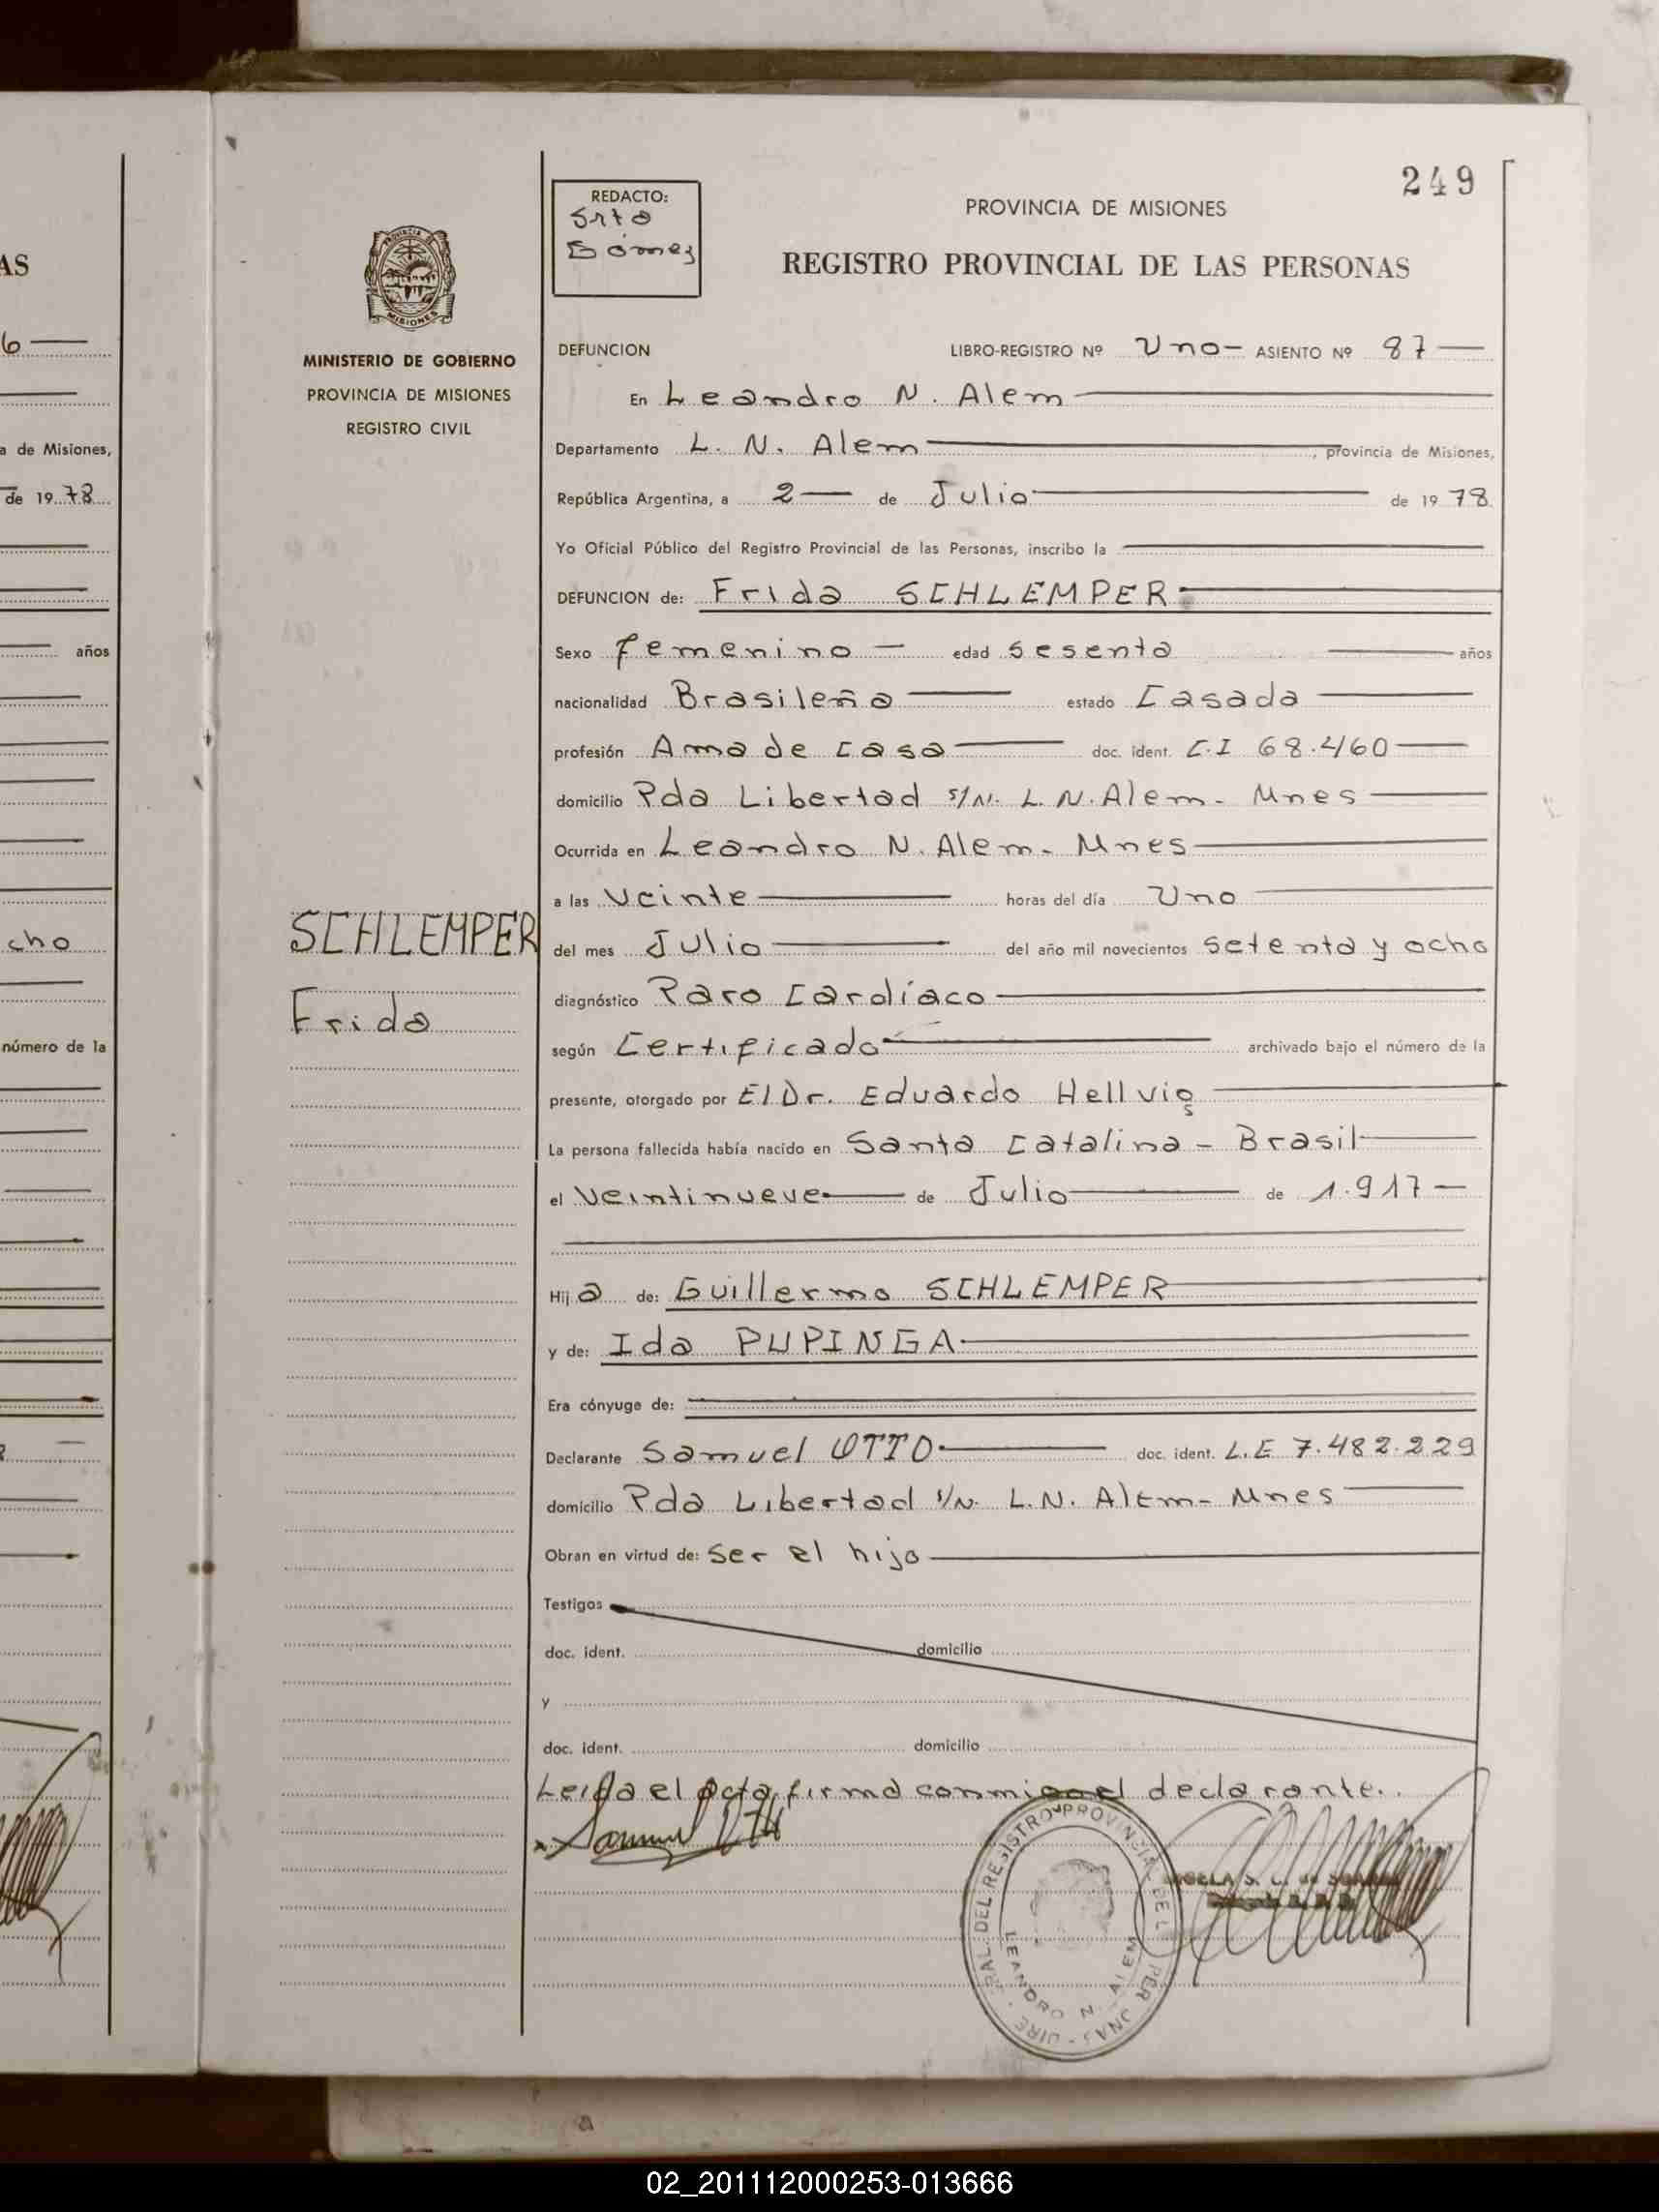 AS
6
a de Misiones,
de 19 78
años
cho
número de la
249
REDACTO:
Srta
Gómez
PROVINCIA DE MISIONES
REGISTRO PROVINCIAL DE LAS PERSONAS
PROVINCIA DE
MISIONES
MINISTERIO DE GOBIERNO
PROVINCIA DE MISIONES
REGISTRO CIVIL
SCHLEMPER
Frida
DEFUNCION LIBRO-REGISTRO Nº Uno- ASIENTO Nº 87
En Leandro N. Alem
Departamento L. N. Alem, provincia de Misiones,
República Argentina, a 2 de Julio de 19 78
Yo Oficial Público del Registro Provincial de las Personas, inscribo la
DEFUNCION de: Frida SCHLEMPER
Sexo femenino edad sesenta años
nacionalidad Brasileña estado Casada
profesión Ama de casa doc. ident. C.I 68.460
domicilio Pda Libertad s/N. L.N.Alem- Mnes
Ocurrida en Leandro N. Alem- Mnes
a las veinte horas del día Uno
del mes Julio del año mil novecientos setenta y ocho
diagnóstico Paro Cardíaco
según Certificado archivado bajo el número de la
presente, otorgado por El Dr. Eduardo Hellvig
La persona fallecida había nacido en Santa Catalina - Brasil
el veintinueve de Julio de 1.917
Hija de: Guillermo SCHLEMPER
y de: Ida PUPINGA
Era cónyuge de:
Declarante Samuel OTTO doc. ident. L.E 7.482.229
domicilio Pda Libertad s/N. L.N. Alem- Mnes
Obran en virtud de: Ser el hijo
Testigos
doc. ident. domicilio
y
doc. ident. domicilio
Leida el acta, firma conmigo el declarante.
Samuel Otto
LEANDRO N. ALEM
02_201112000253-013666